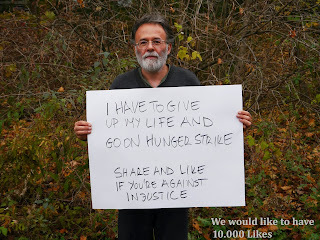 I HAVE TO GIVE
UP MY LIFE AND
GO ON HUNGER STRIKE
SHARE AND LIKE
IF YOU'RE AGAINST
INJUSTICE
We would like to have
10.000 Likes